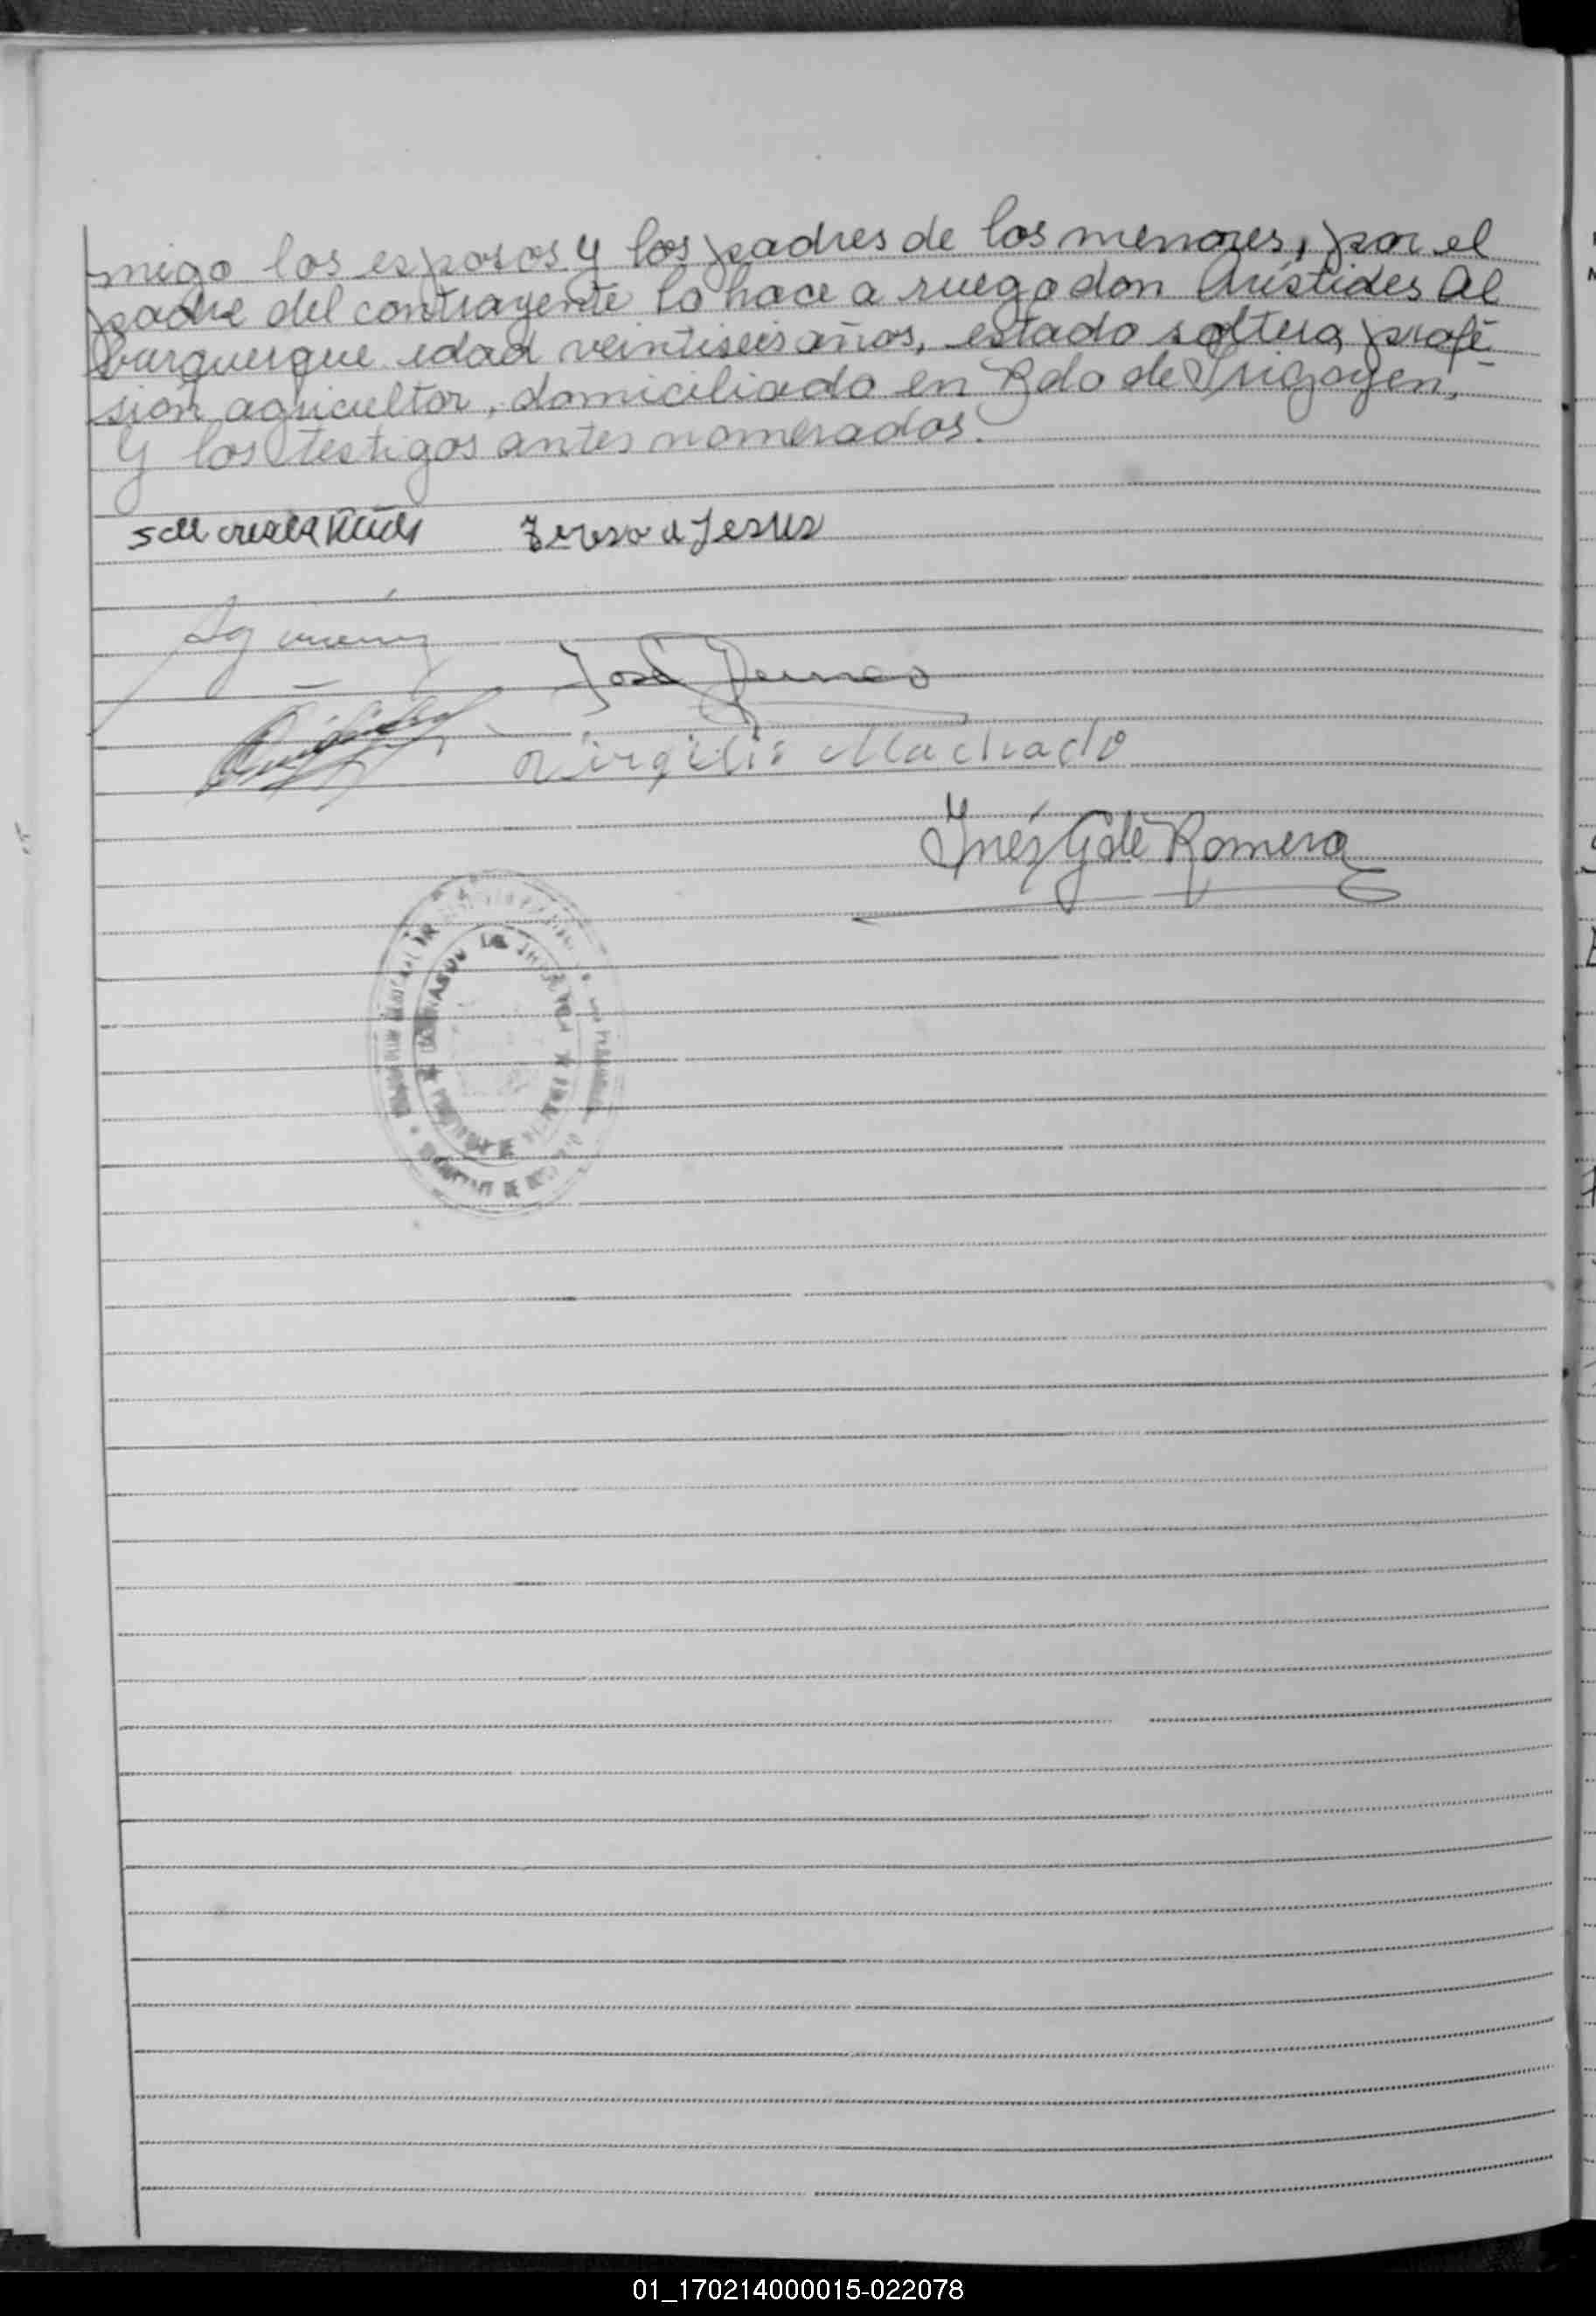 migo los esposos y los padres de los menores, por el
padre del contrayente lo hace a ruego don Arístides Al
burquerque edad veintiseis años, estado soltero, profe
sion agricultor, domiciliado en Bdo de Irigoyen,
Y los testigos antes nomerados.
Tereso d Jesus
José
Virgilio Machado
Inéz G de Romero
DE
01_170214000015-022078